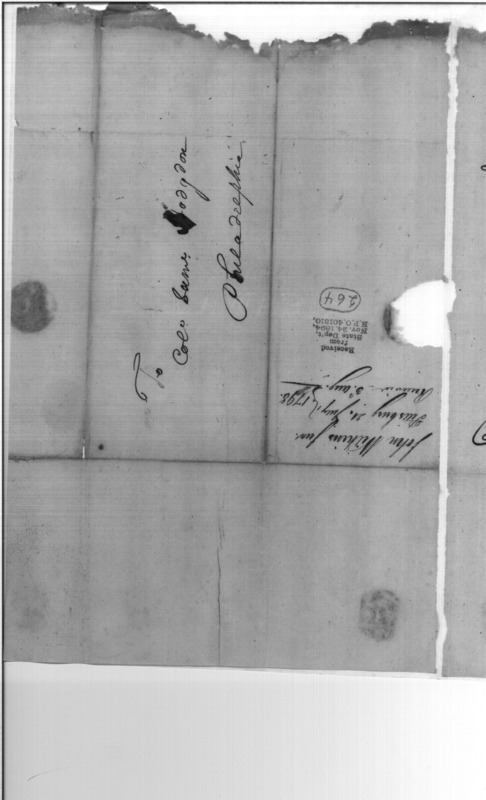 To
Colo Saml Hodgdon
Philadelphia
264
Received
from
State Dep't.
Nov. 24, 1894,
R.P.O. 401810,
John Wilkins Jun.
Pittsburg 21. July 1798.
3d Aug.